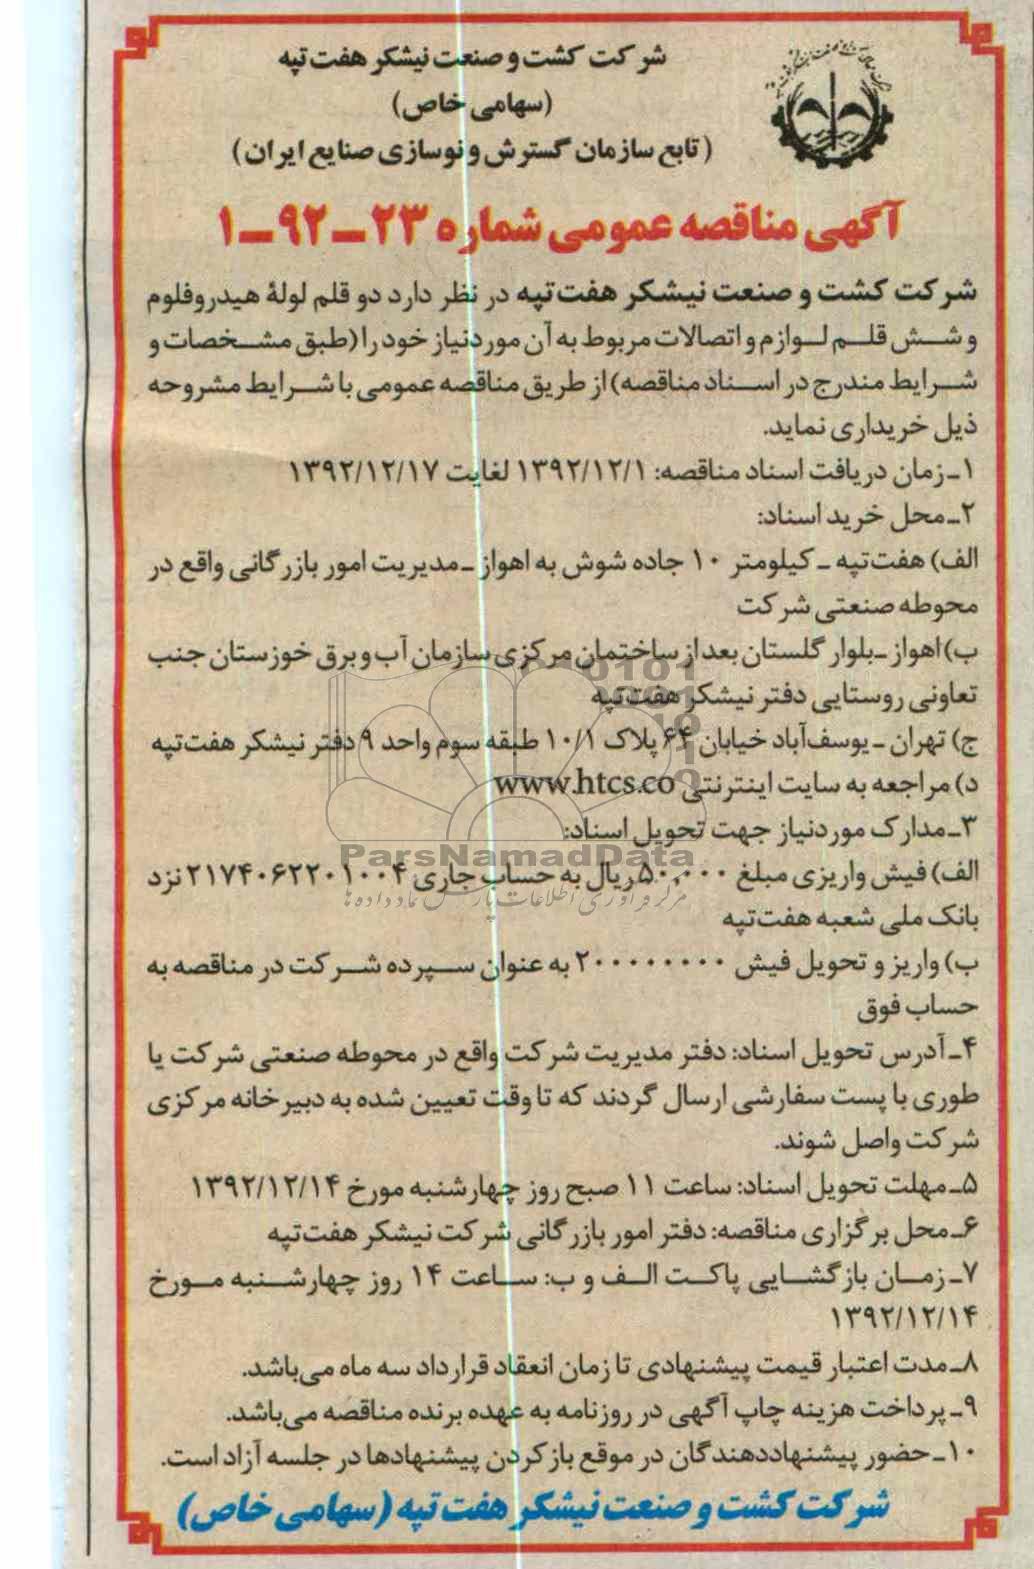 شرکت کشت و صنعت نیشکر هفت‌تپه
(سهامی خاص)
(تابع سازمان گسترش و نوسازی صنایع ایران)
آگهی مناقصه عمومی شماره ۲۳-۹۲-۱
شرکت کشت و صنعت نیشکر هفت‌تپه در نظر دارد دو قلم لولهٔ هیدروفلوم
و شش قلم لوازم و اتصالات مربوط به آن موردنیاز خود را (طبق مشخصات و
شرایط مندرج در اسناد مناقصه) از طریق مناقصه عمومی با شرایط مشروحه
ذیل خریداری نماید.
۱-زمان دریافت اسناد مناقصه: ۱۳۹۲/۱۲/۱ لغایت ۱۳۹۲/۱۲/۱۷
۲-محل خرید اسناد:
الف) هفت‌تپه - کیلومتر ۱۰ جاده شوش به اهواز -مدیریت امور بازرگانی واقع در
محوطه صنعتی شرکت
ب) اهواز -بلوار گلستان بعد از ساختمان مرکزی سازمان آب و برق خوزستان جنب
تعاونی روستایی دفتر نیشکر هفت‌تپه
ج) تهران - یوسف‌آباد خیابان ۶۴ پلاک ۱۰/۱ طبقه سوم واحد ۹ دفتر نیشکر هفت‌تپه
د) مراجعه به سایت اینترنتی www.htcs.co
۳-مدارک موردنیاز جهت تحویل اسناد:
ParsNamadData
الف) فیش واریزی مبلغ ۵۰,۰۰۰ ریال به حساب جاری ۲۱۷۴۰۶۲۲۰۱۰۰۴ نزد
مرکز فرآوری اطلاعات پارس نماد داده‌ها
بانک ملی شعبه هفت‌تپه
ب) واریز و تحویل فیش ۲۰۰۰۰۰۰۰۰ به عنوان سپرده شرکت در مناقصه به
حساب فوق
۴-آدرس تحویل اسناد: دفتر مدیریت شرکت واقع در محوطه صنعتی شرکت یا
طوری با پست سفارشی ارسال گردند که تا وقت تعیین شده به دبیرخانه مرکزی
شرکت واصل شوند.
۵-مهلت تحویل اسناد: ساعت ۱۱ صبح روز چهارشنبه مورخ ۱۳۹۲/۱۲/۱۴
۶-محل برگزاری مناقصه: دفتر امور بازرگانی شرکت نیشکر هفت‌تپه
۷-زمان بازگشایی پاکت الف و ب: ساعت ۱۴ روز چهارشنبه مورخ
۱۳۹۲/۱۲/۱۴
۸-مدت اعتبار قیمت پیشنهادی تا زمان انعقاد قرارداد سه ماه می‌باشد.
۹-پرداخت هزینه چاپ آگهی در روزنامه به عهده برنده مناقصه می‌باشد.
۱۰-حضور پیشنهاددهندگان در موقع بازکردن پیشنهادها در جلسه آزاد است.
شرکت کشت و صنعت نیشکر هفت‌تپه (سهامی خاص)